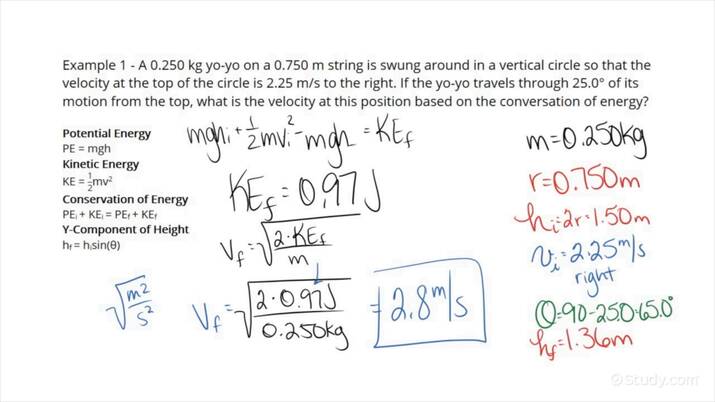 Example 1 - A 0.250 kg yo-yo on a 0.750 m string is swung around in a vertical circle so that the
velocity at the top of the circle is 2.25 m/s to the right. If the yo-yo travels through 25.0° of its
motion from the top, what is the velocity at this position based on the conversation of energy?
Potential Energy
PE = mgh
Kinetic Energy
KE = ½mv²
Conservation of Energy
PEᵢ + KEᵢ = PE_f + KE_f
Y-Component of Height
h_f = hᵢsin(θ)
mghᵢ + ½mvᵢ² - mgh = KE_f
KE_f = 0.97 J
V_f = √(2·KE_f / m)
√(m²/s²)
V_f = √(2·0.97J / 0.250kg) = 2.8 m/s
m=0.250kg
r=0.750m
hᵢ=2r=1.50m
vᵢ=2.25m/s
right
θ=90-25.0=65.0°
h_f=1.36m
Study.com